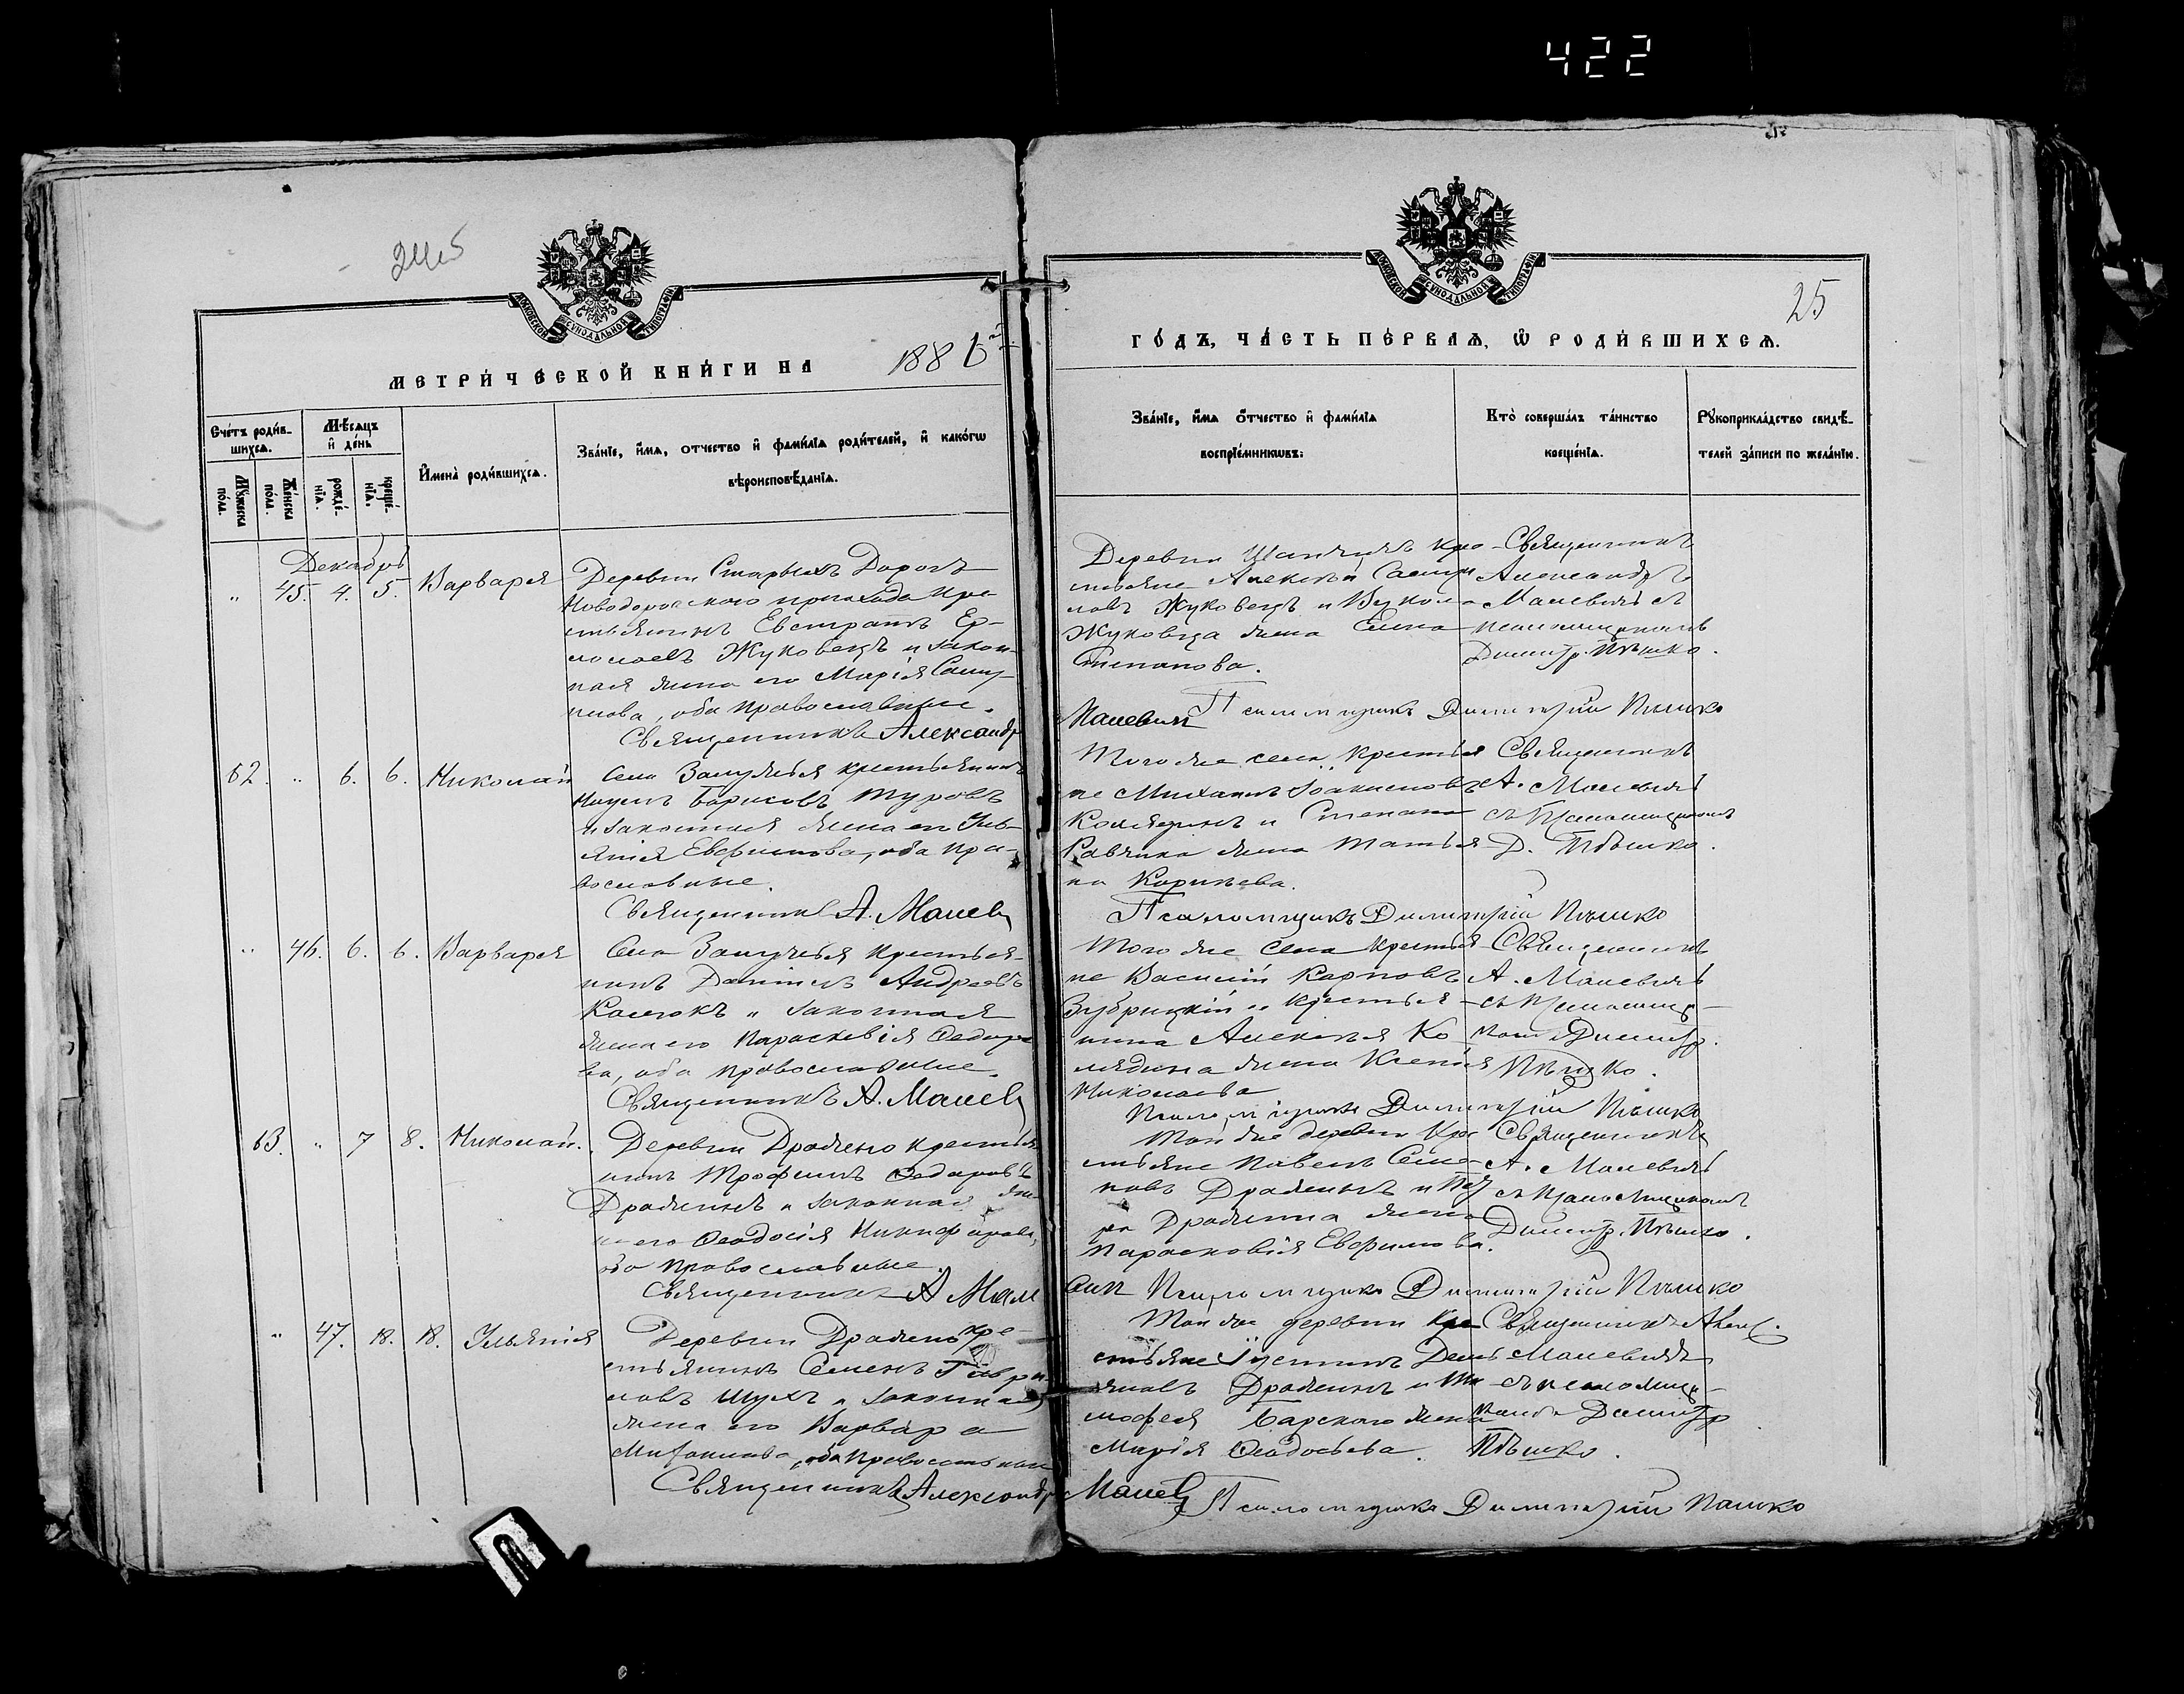 422
245
МЕТРИ́ЧЕСКОЙ КНИ́ГИ НА 1886й
Сче́тъ роди́в-
шихся.
Мѣ́сяцъ
и҆ де́нь
Му́жеска
по́ла.
Же́нска
по́ла.
рожде́-
нїѧ.
креще́-
нїѧ.
И҆мена̀ роди́вшихсѧ.
Зва́нїе, и҆́мѧ, ѻ҆тчество и҆ фами́лїѧ роди́телей, и҆ како́гѡ
вѣроисповѣ́данїѧ.
Декабрь
" 45. 4. 5. Варвара
Деревни Старыхъ Дорогъ
Новодорожского прихода кре
стьянинъ Евстратъ Ер-
молаевъ Жуковецъ и закон-
ная жена его Марія
, оба православные.
Священникъ Александръ
62. " 6. 6. Николай
Села Залужья крестьянинъ
Наумъ Борисовъ Туровъ
и законная жена его Уль-
янія Евфимова, оба пра-
вославные.
Священникъ А. Малеви
" 46. 6. 6. Варвара
Села Залужья крестья-
нинъ Даніилъ Андреевъ
и законная
жена его Параскевія Федоро
ва, оба православные.
Священникъ А. Малеви
63. " 7 8. Николай.
Деревни Дражно крестья
нинъ Трофимъ Федоровъ
Дражинъ и законная же
на его Феодосія Никифорова,
оба православные.
Священникъ А Мал
" 47. 18. 18. Ульянія
Деревни Дражно кре-
стьянинъ Семенъ Гаври
ловъ Шухъ и законная
жена его Варвара
, оба православные
Священникъ Александръ
25
ГО́ДЪ, ЧА́СТЬ ПЕ́РВАѦ, Ѡ҆ РОДИ́ВШИХСѦ.
Зва́нїе, и҆́мѧ ѻ҆́тчество и҆ фами́лїѧ
воспрїе́мникѡвъ:
Кто̀ соверша́лъ та́инство
креще́нїѧ.
Рꙋкоприкла́дство свидѣ́-
телей за́писи по жела́нїю.
Деревни кре-
стьяне Алексѣй
Жуковецъ и
Жуковца жена Елена
Степанова.
Священникъ
Александръ
Малевичъ съ
псаломщикомъ
Димитр. Пѣшко.
Малевичъ Псаломщикъ Димитрій Пѣшко
Того же села крестья
не Михаилъ Іоакимовъ
Колядинъ и Степана
жена Татья
на Карнѣева.
Священникъ
А. Малевичъ
съ псаломщикомъ
Д. Пѣшко.
Псаломщикъ Димитрій Пѣшко
Того же села крестья
не Василій Карповъ
Зубрицкій и крестья-
нина Алексѣя Ко
лядина жена Ксенія
Николаева
Священникъ
А. Малевичъ
съ псаломщи-
комъ Димитр.
Пѣшко.
Псаломщикъ Димитрій Пѣшко
Той же деревни кре
стьяне Павелъ Семе
новъ Дражинъ и Пет
ра Дражина жена
Параскевія Евфимова.
Священникъ
А. Малевичъ
съ псаломщикомъ
Димитр. Пѣшко.
Псаломщикъ Димитрій Пѣшко
Той же деревни кре
стьяне Іустинъ Демь
яновъ Дражинъ и Ти
мофея Барского жена
Марія Феодосьева.
Священникъ Алекс.
Малевичъ
съ псаломщи-
комъ Димитр
Пѣшко.
Малеви Псаломщикъ Димитрій Пѣшко